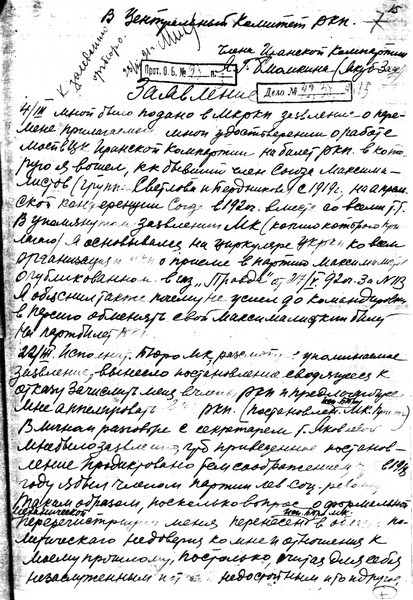 В Центральный Комитет РКП.
Члена Иранской Компартии
Я. Г. Блюмкина (Якуб-Заде)
К заседанию
Оргбюро.
Прот. О.Б. №
Дело №
Заявление
4/III мной было подано в МК РКП заявление о пере-
мене прилагаемого мной удостоверения о работе
моей в ЦК Иранской Компартии на билет РКП. в кото-
рую я вошел, как бывший член Союза Максима-
листов (группы Светлова и Бердникова) с 1919 г., на апрель-
ской конференции Союза в 1920 г. вместе со всеми т.т.
В упомянутом заявлении МК (копию которого при-
лагаю) я основывался на циркуляре ЦК РКП ко всем
организациям РКП о приеме в партию Максималистов
опубликованном в газ. "Правда" от
Я объяснил также почему не успел до командировки
в Персию обменять свой Максималистский билет
на партбилет РКП.
22/III. Исполнит. Бюро МК, рассмотрев упоминаемое
заявление, вынесло постановление сводящееся к
отказу зачислить меня в члены РКП и предложившее
мне апеллировать РКП. (постановлен. МК
В личном разговоре с секретарем т. Яковлевой
мне было заявлено, что приведенное постанов-
ление продиктовано тем соображением в 1918
году я был членом партии лев. соц.-револ.
Таким образом, поскольку вопрос о формальной
механической
перерегистрации меня перенесен в область по-
литического недоверия ко мне и отношения к
моему прошлому, постольку, считая для себя
незаслуженным и недостойным и то и другое,